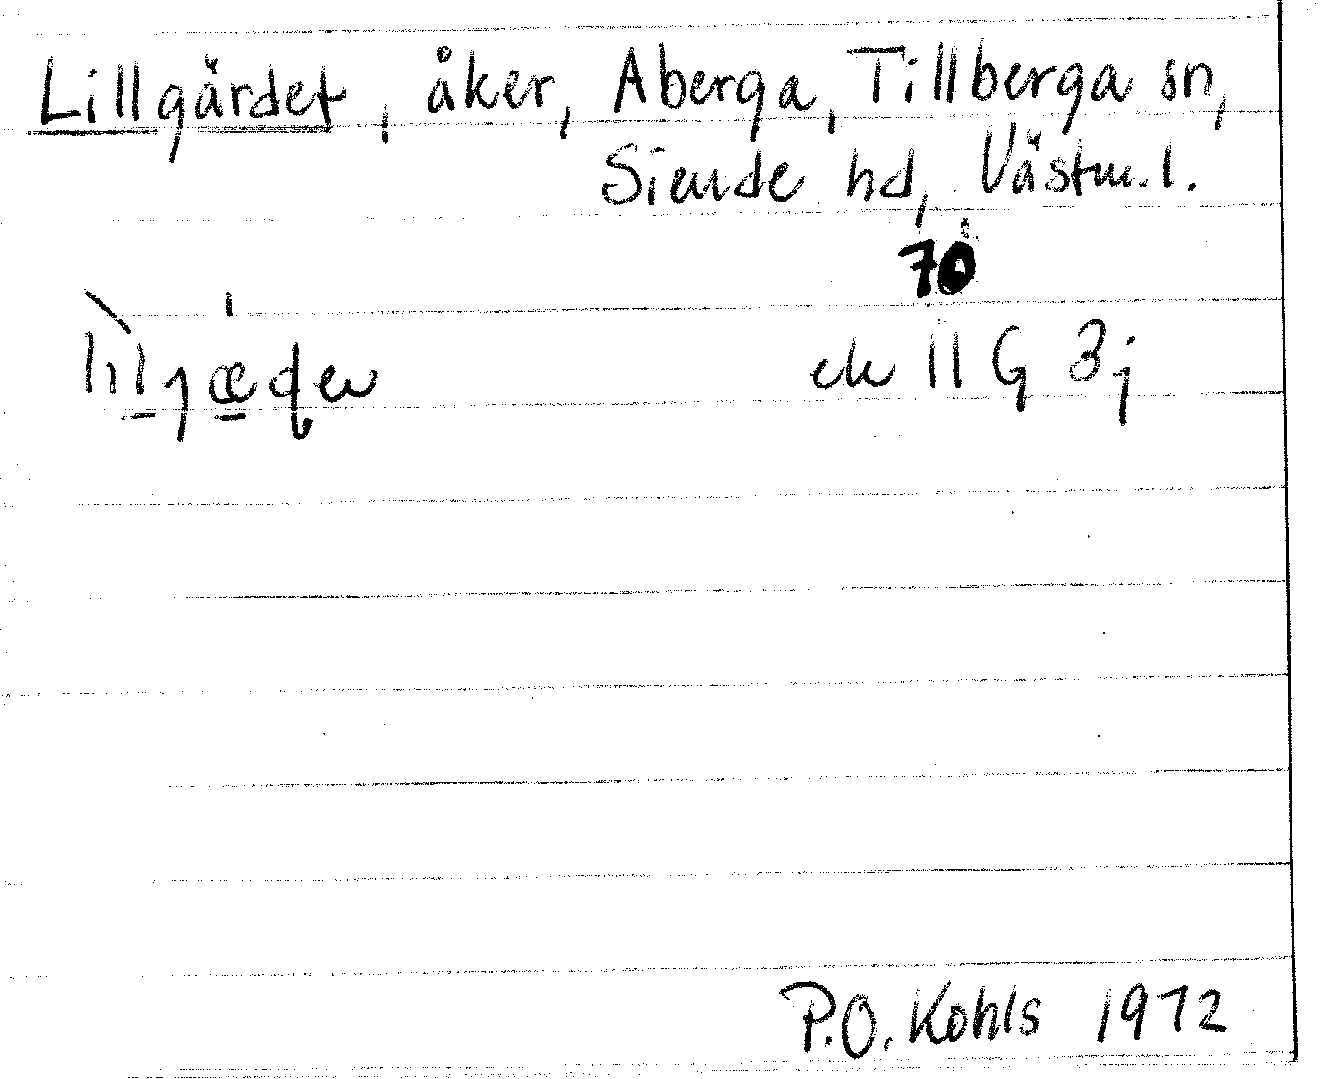 Lillgärdet, åker, Aberga, Tillberga sn,
Siende hd, Västm. l.
70
ek 11 G 3j
P.O. Kohls 1972